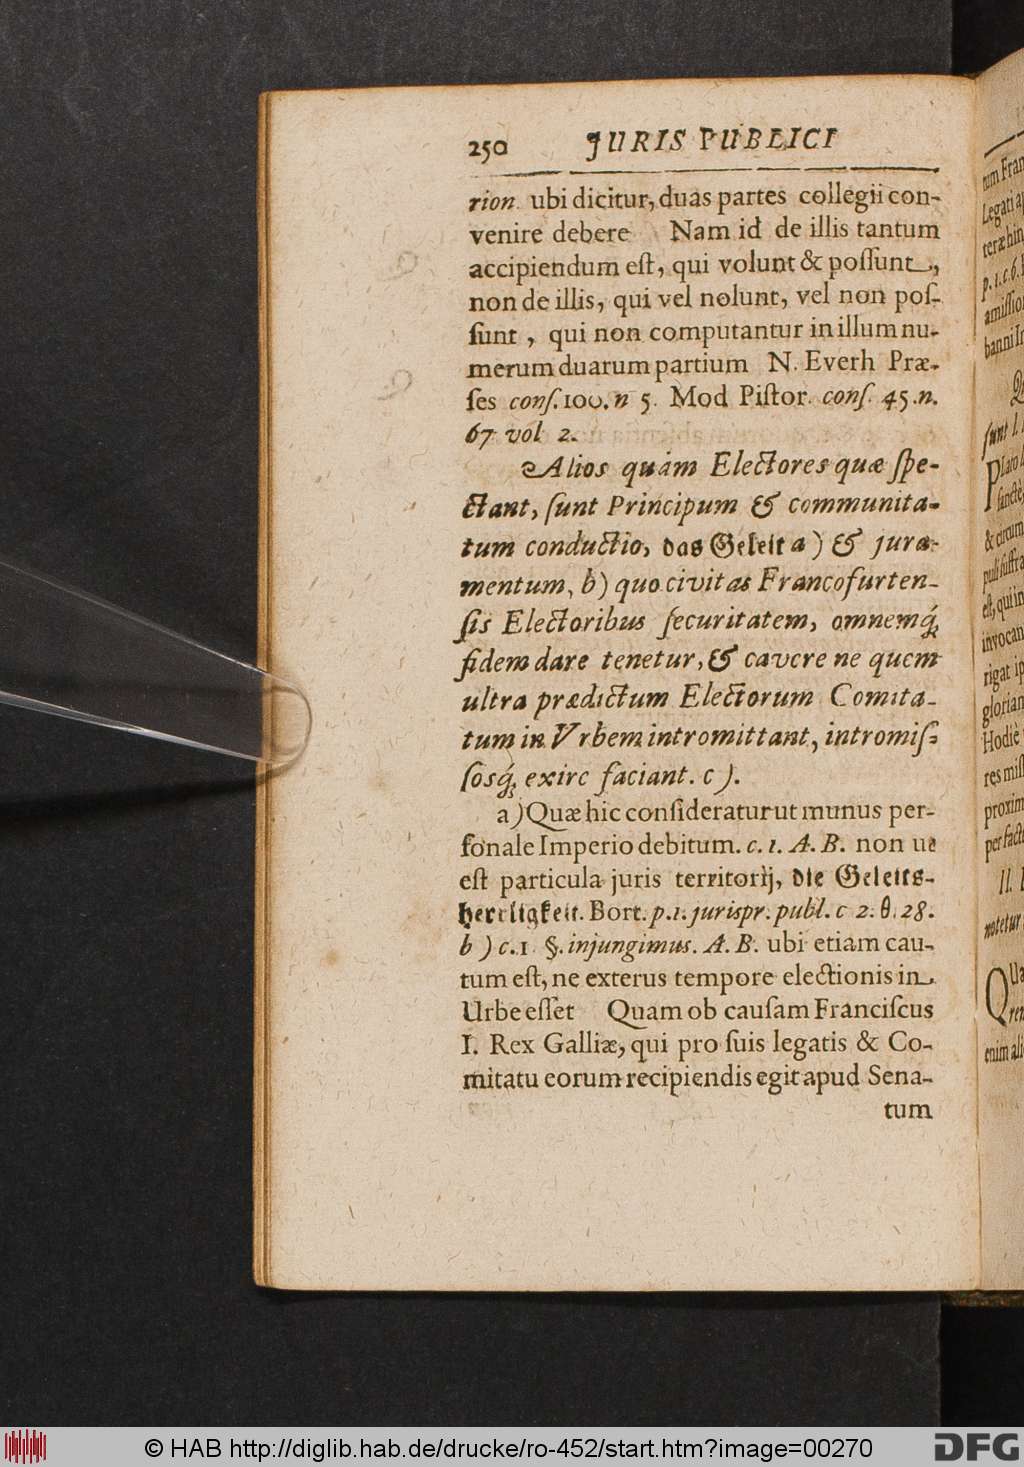 250 JURIS PUBLICI
rion. ubi dicitur, duas partes collegii con-
venire debere Nam id de illis tantum
accipiendum eſt, qui volunt & poſſunt,
non de illis, qui vel nolunt, vel non poſ-
ſunt, qui non computantur in illum nu-
merum duarum partium N. Everh Præ-
ſes conſ. 100. n 5. Mod Piſtor. conſ. 45. n.
67 vol 2.
Alios quàm Electores quæ ſpe-
ctant, ſunt Principum & communita-
tum conductio, das Geleit a) & jura-
mentum, b) quo civitas Francofurten-
ſis Electoribus ſecuritatem, omnemq́;
fidem dare tenetur, & cavere ne quem
ultra prædictum Electorum Comita-
tum in Urbem intromittant, intromiſ-
ſosq́; exire faciant. c).
a) Quæ hic conſideratur ut munus per-
ſonale Imperio debitum. c. 1. A. B. non ut
eſt particula juris territorij, die Geleits-
herrligkeit. Bort. p. 1. jurispr. publ. c 2. θ. 28.
b) c. 1 §. injungimus. A. B. ubi etiam cau-
tum eſt, ne exterus tempore electionis in
Urbe eſſet Quam ob cauſam Franciſcus
I. Rex Galliæ, qui pro ſuis legatis & Co-
mitatu eorum recipiendis egit apud Sena-
tum
tum Fran
Legati a
teræ hin
p. 1. c. 6.
amiſſion
banni I
ſunt l.
Plato
ſanctè
& circum
puli ſuffra
eſt, qui in
invocan
rigat ip
gloriam
Hodiè
res miſ
proxim
per facte
II.
notetur
QUa
ren
enim ali
© HAB http://diglib.hab.de/drucke/ro-452/start.htm?image=00270
DFG